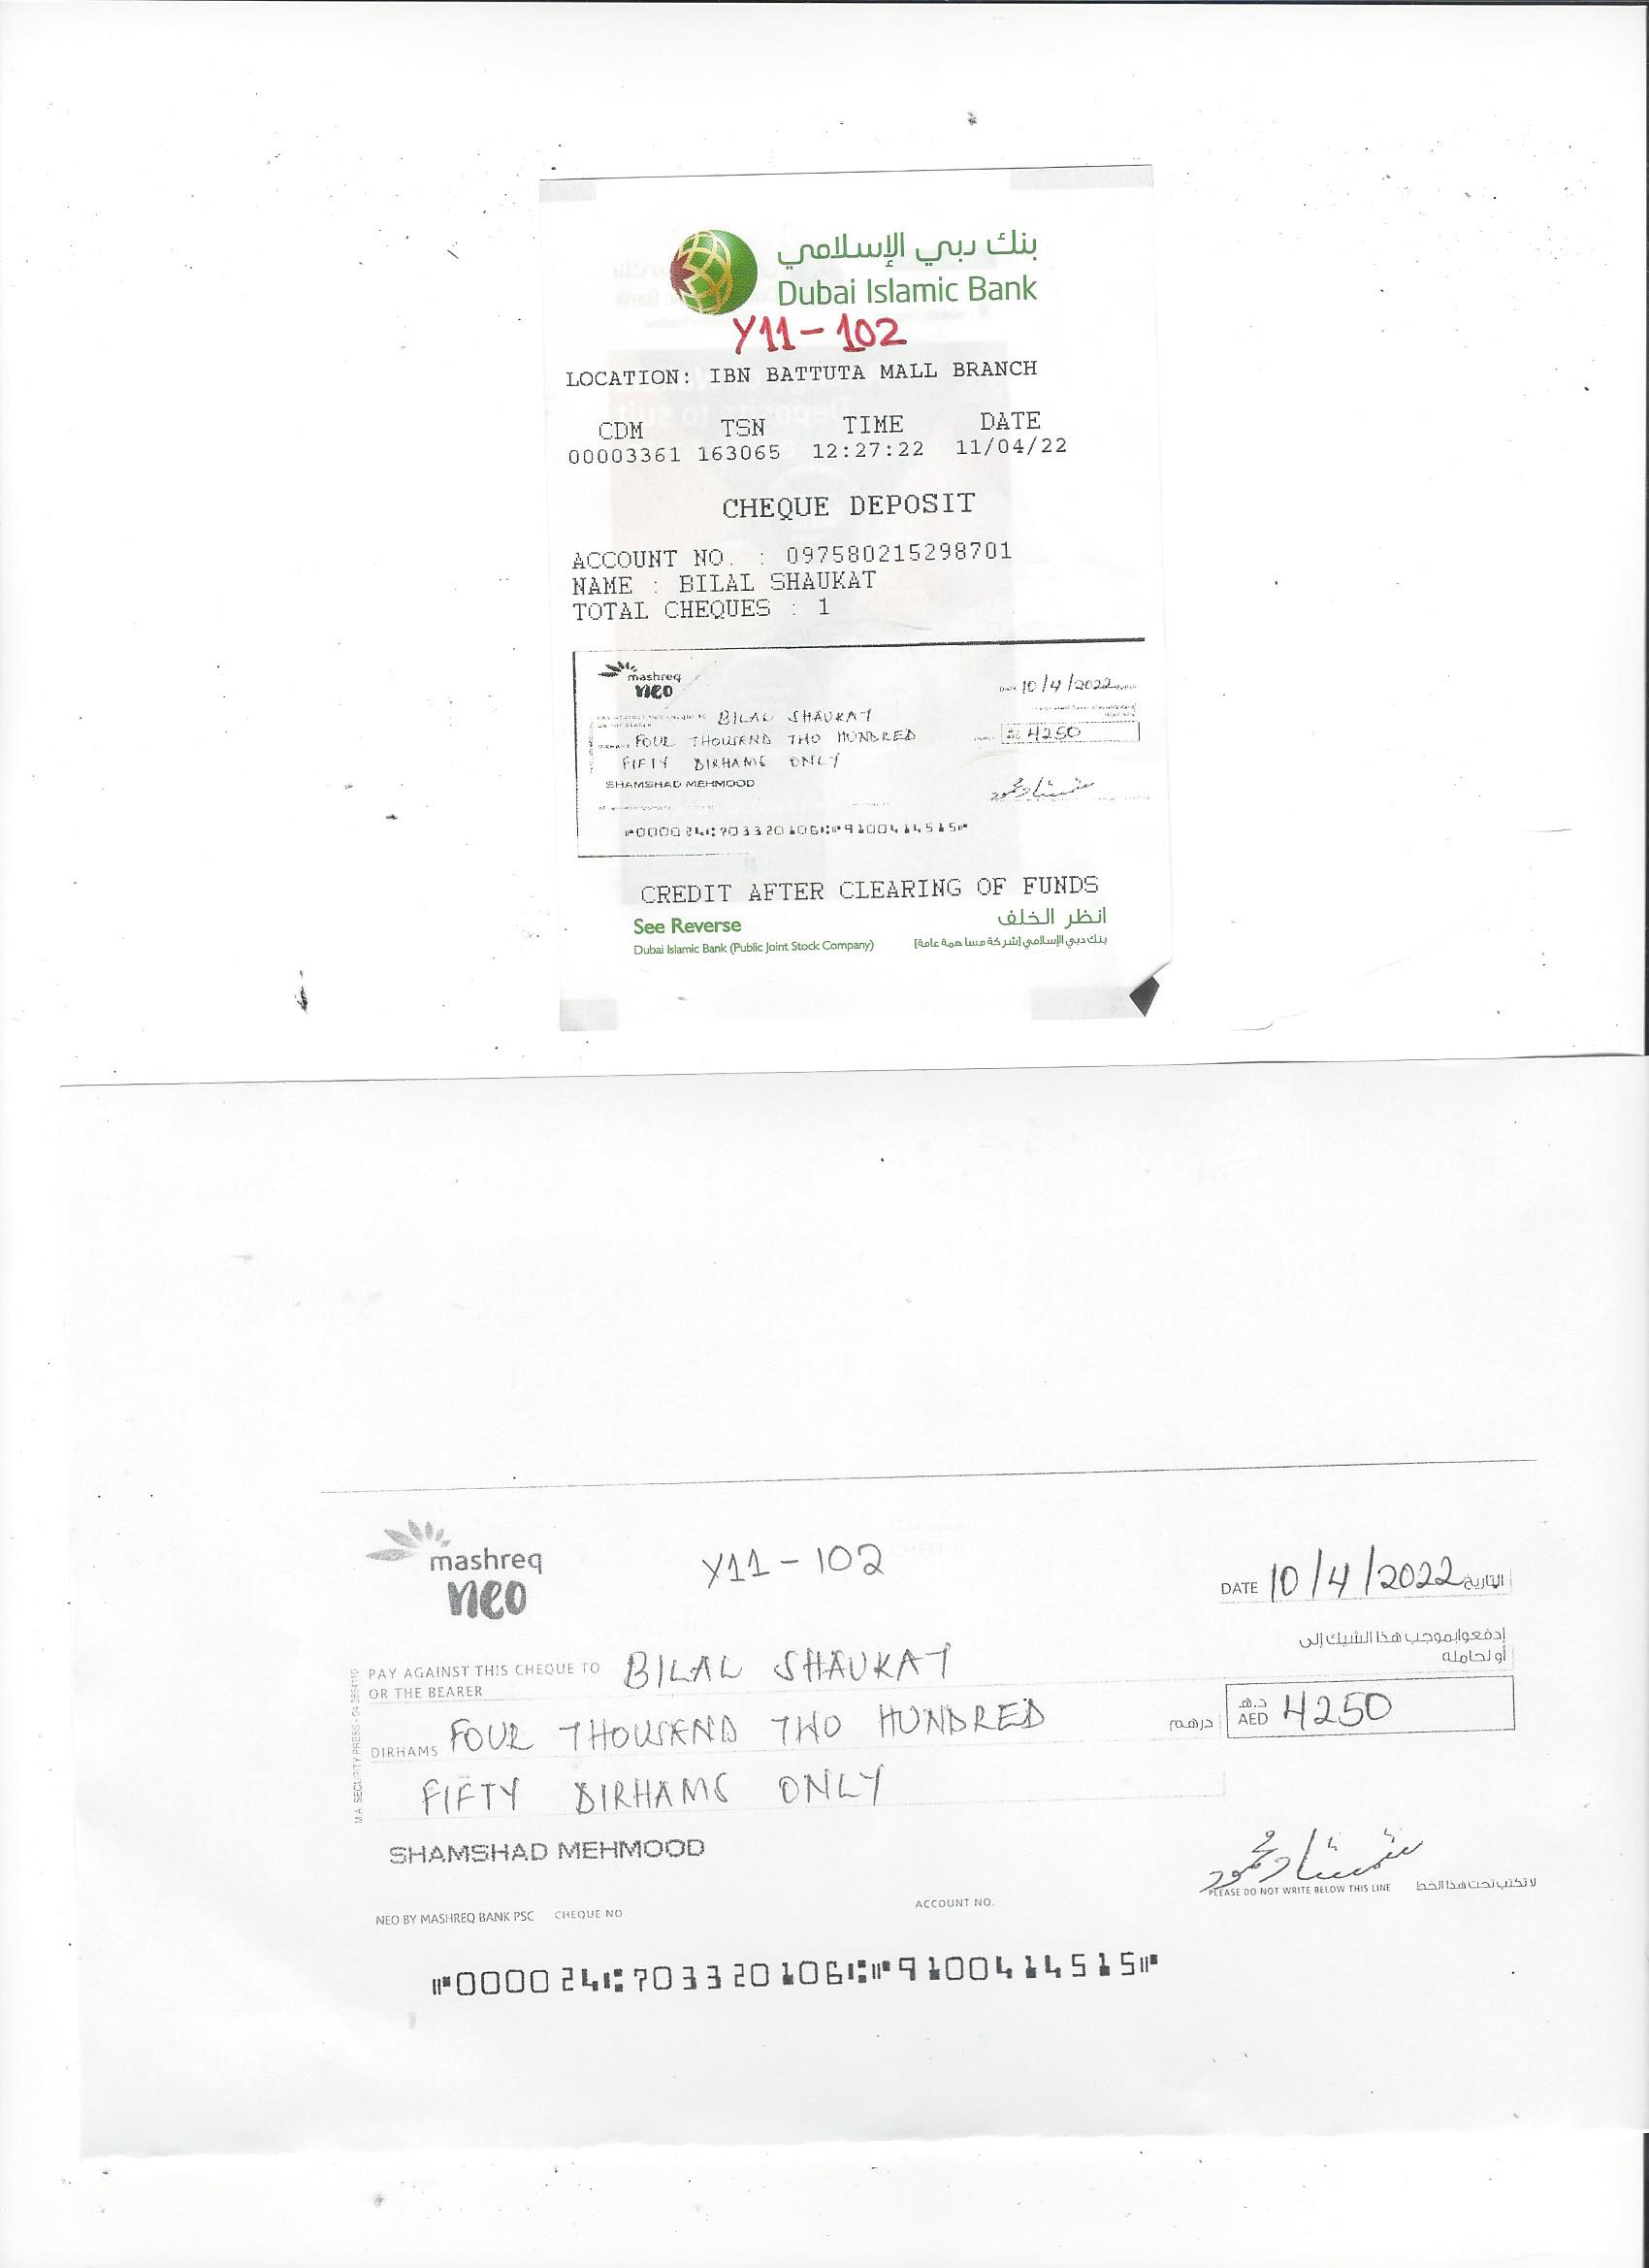 بنك دبي الإسلامي
Dubai Islamic Bank
Y11-102
LOCATION: IBN BATTUTA MALL BRANCH
CDM TSN TIME DATE
00003361 163065 12:27:22 11/04/22
CHEQUE DEPOSIT
ACCOUNT NO. : 097580215298701
NAME : BILAL SHAUKAT
TOTAL CHEQUES : 1
mashreq
neo
10/4/2022
BILAL SHAUKAT
FOUR THOUSEND TWO HUNDRED
4250
FIFTY DIRHAMS ONLY
SHAMSHAD MEHMOOD
شمشاد محمود
⑈000024⑆703320106⑆⑈9100414515⑈
CREDIT AFTER CLEARING OF FUNDS
See Reverse انظر الخلف
Dubai Islamic Bank (Public Joint Stock Company) بنك دبي الإسلامي (شركة مساهمة عامة)
mashreq
neo
Y11-102
DATE 10/4/2022 التاريخ
PAY AGAINST THIS CHEQUE TO BILAL SHAUKAT إدفعوا بموجب هذا الشيك إلى
OR THE BEARER أو لحامله
DIRHAMS FOUR THOUSEND TWO HUNDRED درهم
د.هـ
AED 4250
FIFTY DIRHAMS ONLY
M.A. SECURITY PRESS - 04
SHAMSHAD MEHMOOD
شمشاد محمود
PLEASE DO NOT WRITE BELOW THIS LINE لا تكتب تحت هذا الخط
NEO BY MASHREQ BANK PSC CHEQUE NO. ACCOUNT NO.
⑈000024⑆703320106⑆⑈9100414515⑈